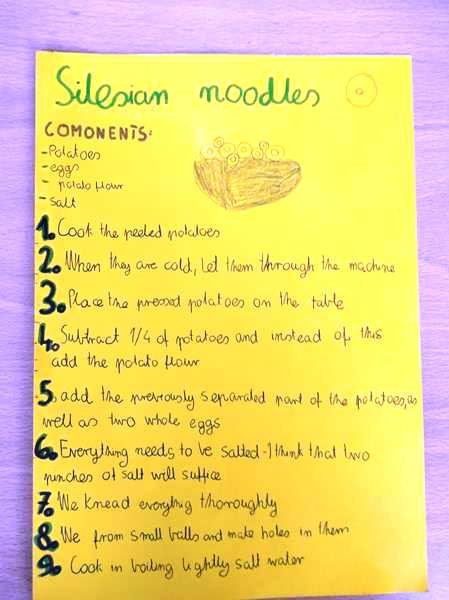 Silesian noodles
COMONENTS:
-Potatoes
-eggs
- potato flour
- salt
1. Cook the peeled potatoes
2. When they are cold, let them through the machine
3. Place the pressed potatoes on the table
4. Subtract 1/4 of potatoes and instead of this
add the potato flour
5. add the previously separated part of the potatoes, as
well as two whole eggs
6. Everything needs to be salted - I think that two
pinches of salt will suffice
7. We knead everythig thoroughly
8. We from small balls and make holes in them
9. Cook in boiling lightly salt water